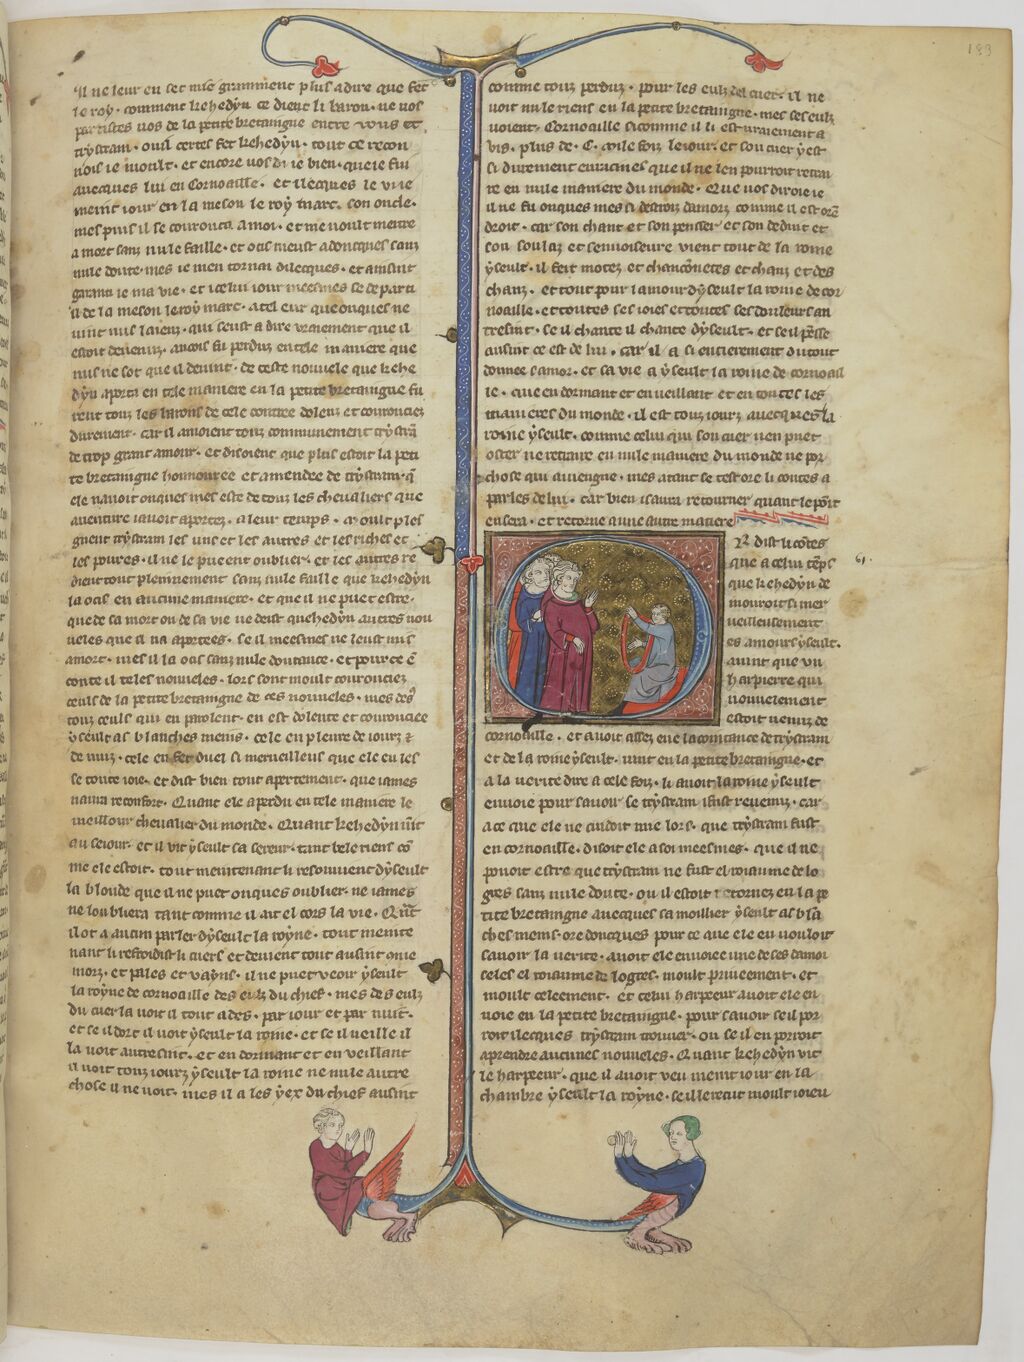 189
il ne leur en set mie granment plus a dire que fet
le roy · comment kehedyn ce dient li baron · ne vos
partistes vos de la petite bretaingne entre vous et
trystram · oul certes fet kehedyn · tout ce recon
nois ie moult · et encore vos di ie bien · que ie fui
avecques lui en cornoaille · et ilecques le vi ie
meint iour en la meson le roy marc · son oncle ·
mes puis il se courouca a moi · et me voult metre
a mort sanz nule faille · et ocis meust adoncques sanz
nule doute · mes ie men tornai dilecques · et ainsint
garanti ie ma vie · et icelui iour meesmes se departi
il de la meson le roy marc · a tel eur que onques ne
vint nus laienz · qui seust a dire vraiement que il
estoit devenuz · ancois fu perduz en tele maniere que
nus ne sot que il devint · de ceste nouvele que kehe
dyn aporta en tele maniere en la petite bretaingne fu
rent touz les barons de cele contree dolenz et courouciez
durement · car il amoient touz communement trystrā
de trop grant amour · et disoient que plus estoit la peti
te bretaingne honnouree et amendee de trystram · q̄
ele navoit onques mes este de touz les chevaliers que
aventure i avoit aportez · a leur temps · moult ples
gnent trystram les uns et les autres et les riches et
les poures · il ne le pueent oublier · et les autres re
dient tout plenierement sanz nule faille que kehedyn
la ocis en aucune maniere · et que il ne puet estre ·
que de sa mort ou de sa vie ne deist kehedyn autres nou
veles que il na aportees · se il meesmes ne leust mis
a mort · mes il la ocis sanz nule doutance · et pour ce ē
conte il teles nouveles · lors sont moult courouciez
ceuls de la petite bretaingne de ces nouveles · mes des
touz ceuls qui en parolent · en est dolente et courouciee
yseult as blanches meins · cele en pleure de iourz ⁊
de nuiz · cele en fet duel si merveilleus que ele en les
se toute ioie · et dist bien tout apertement · que iames
naura reconfort · Quant ele a perdu en tele maniere le
meillour chevalier du monde · Quant kehedyn vīt
au seiour · et il vit yseult sa sereur · tant bele riens cō
me ele estoit · tout meintenant li resouvient dyseult
la bloude que il ne puet onques oublier · ne iames
ne loubliera tant comme il ait el cors la vie · Quāt
il ot a aucun parler dyseult la royne · tout meinte
nant li refroidist li cuers et devient tout ausint cōme
morz · et pales et vayns · il ne puet veoir yseult
la royne de cornoaille des eulz du chief · mes des eulz
du cuer la voit il tout ades · par iour et par nuit ·
et se il dort il voit yseult la roine · et se il veille il
la voit autresint · et en dormant et en veillant
il voit touz iourz yseult la roine ne nule autre
chose il ne voit · mes il a les yex du chief ausint
comme touz perduz · pour les eulz del cuer · il ne
voit nule riens en la petite bretaingne · mes ses eulz
voient Cornoaille si comme il li est vraiement a
vis · plus de · C · mile foiz le iour · et son cuer y est
si durement enracines que il ne len pourroit retrai
re en nule maniere du monde · Que vos diroie ie
il ne fu onques mes si destroiz damors comme il est orē
droit · car son chant et son pensser et son deduit et
son soulaz et senvoiseure vient tout de la roine
yseult · il fait motez et chanconnetes et chanz et des
chanz · et tout pour lamour dyseult la roine de cor
noaille · et toutes ses ioies et toutes ses douleurs an
tresint · se il chante il chante dyseult · et se il pēsse
ausint ce est de lui · car il a si entierement du tout
donnee samor · et sa vie a yseult la roine de cornoail
le · que en dormant et en veillant et en toutes les
manieres du monde · il est touz iourz avecques la
roine yseult · comme celui qui son cuer nen puet
oster ne retraire en nule maniere du monde ne por
chose qui aviengne · mes atant se test ore li contes a
parler de lui · car bien i saura retourner quant le poīt
en sera · et retorne a une autre matiere
Or dist li cōtes
que a celui tēps
que kehedyn de
mouroit si mer
veilleusement
es amours yseult ·
avint que un
harpierre qui
nouvelement
estoit venuz de
cornoaille · et avoit assez eue la cointance de trystram
et de la roine yseult · vint en la petite bretaingne · et
a la verite dire a cele foiz · li avoit la roine yseult
envoie pour savoir se trystram i fust revenuz · car
a ce que ele ne cuidoit mie lors · que trystram fust
en cornoaille · disoit ele a soi meesmes · que il ne
pouoit estre que trystram ne fust el roiaume de lo
gres sanz nule doute · ou il estoit retornez en la pe
tite bretaingne avecques sa moillier yseult as blā
ches meins · ore doncques pour ce que ele en vouloit
savoir la verite · avoit ele envoiee une de ses damoi
seles el roiaume de logres · moult priveement · et
moult celeement · et celui harpeeur avoit ele en
voie en la petite bretaingne · pour savoir se il por
roit ilecques trystram trouver · ou se il en porroit
aprendre aucunes nouveles · Quant kehedyn vit
le harpeeur · que il avoit veu meint iour en la
chambre yseult la royne · se il le recut moult ioieu